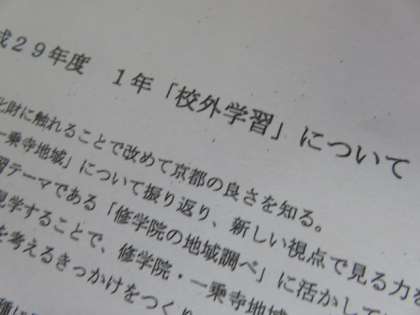 成29年度　1年「校外学習」について
化財に触れることで改めて京都の良さを知る。
一乗寺地域」について振り返り、新しい視点で見る力を
習テーマである「修学院の地域調べ」に活かして
見学することで、修学院・一乗寺地域
を考えるきっかけをつくり